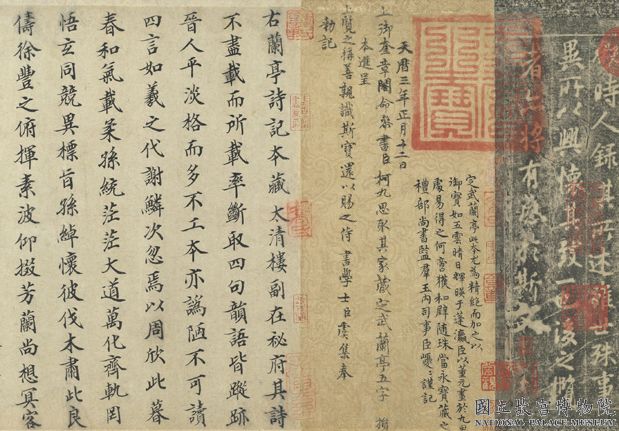 時人錄其所述雖世殊事
異所以興懷其致一也後之攬
者亦將有感於斯文
定武蘭亭此本尤為精絕而加之以
御寶如五雲晴日輝映于蓬瀛臣以董元畫於九思
處易得之何啻獲和璧隨珠當永寶藏之
禮部尚書監羣玉內司事臣巙巙謹記
天曆三年正月十二日
上御奎章閣命參書臣柯九思取其家藏定武蘭亭五字損
本進呈
上覽之稱善親識斯寶還以賜之侍書學士臣虞集奉
勑記
右蘭亭詩記本藏太清樓副在祕府其詩
不盡載而所載率斷取四句韻語皆蹤跡
晉人平淡格而多不工本亦譌陋不可讀
四言如羲之代謝鱗次忽焉以周欣此暮
春和氣載柔孫統茫茫大道萬化齊軌罔
悟玄同競異標旨孫綽懷彼伐木肅此良
儔徐豐之俯揮素波仰掇芳蘭尚想冥客
國立故宮博物院
NATIONAL PALACE MUSEUM